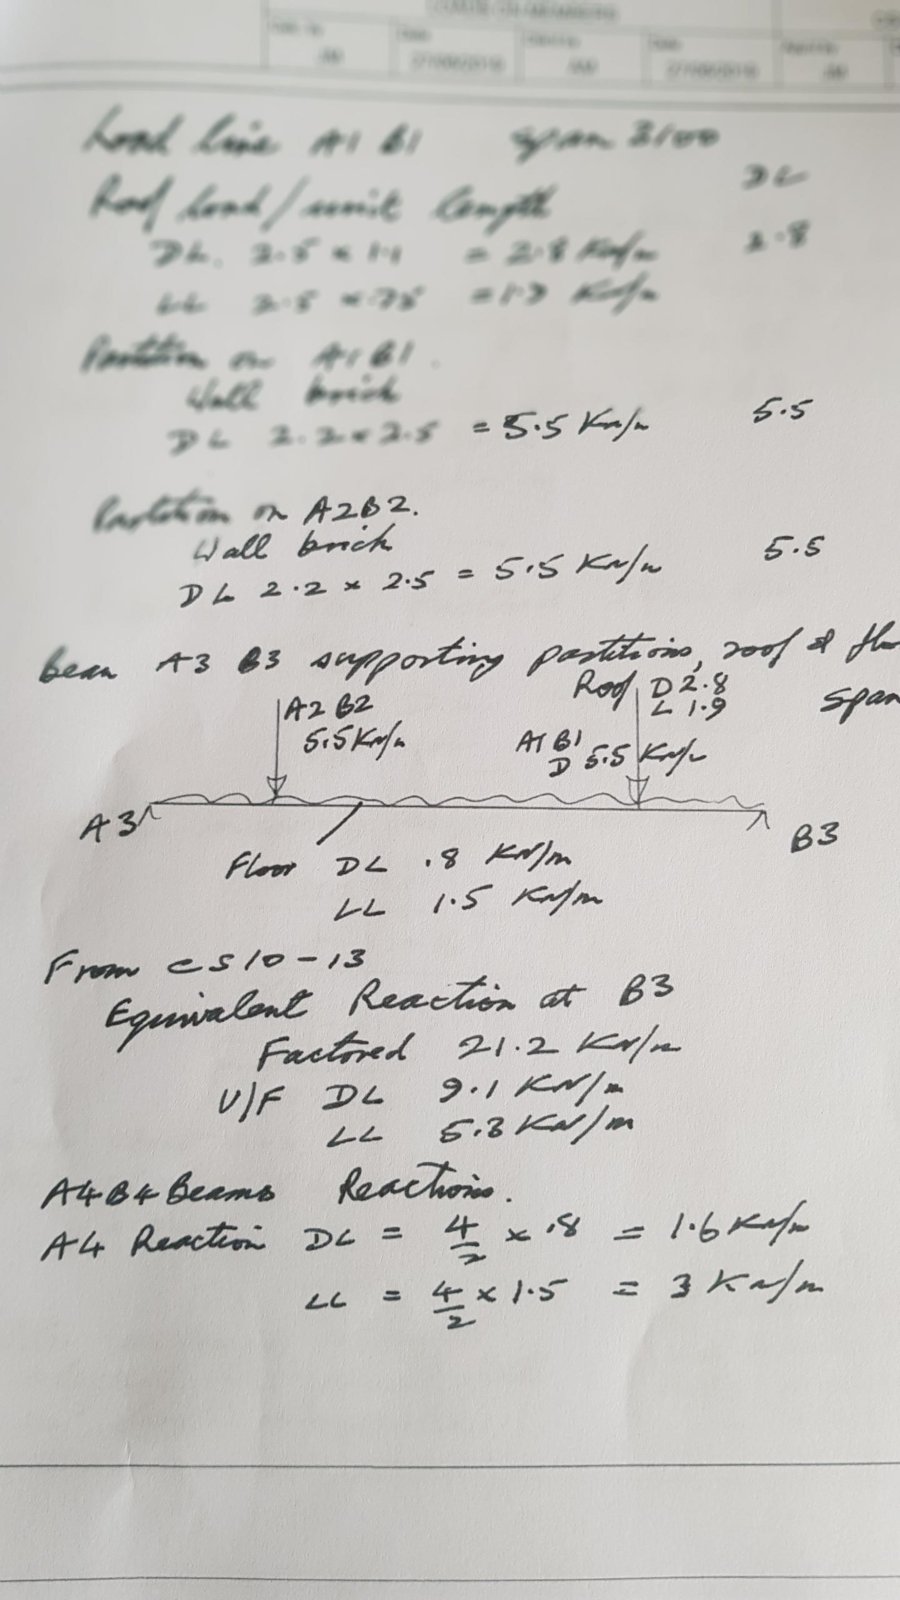 LOADS ON MEMBERS
Date
27/06/2019
Date
27/06/2019
Load line A1 B1 span 3100
DL
Roof load/unit length
DL. 2.5 x 1.1 = 2.8 KN/m 2.8
LL 2.5 x .75 = 1.9 KN/m
Partition on A1B1.
Wall brick
DL 2.2 x 2.5 = 5.5 KN/m 5.5
Partition on A2B2.
Wall brick
DL 2.2 x 2.5 = 5.5 KN/m 5.5
Beam A3 B3 supporting partitions, roof &
span
A2 B2
5.5 KN/m
Roof D 2.8
L 1.9
A1 B1
D 5.5 KN/m
A3
B3
Floor DL .8 KN/m
LL 1.5 KN/m
From CS10-13
Equivalent Reaction at B3
Factored 21.2 KN/m
U/F DL 9.1 KN/m
LL 5.3 KN/m
A4B4 Beams Reactions.
A4 Reaction DL = 4/2 x .8 = 1.6 KN/m
LL = 4/2 x 1.5 = 3 KN/m